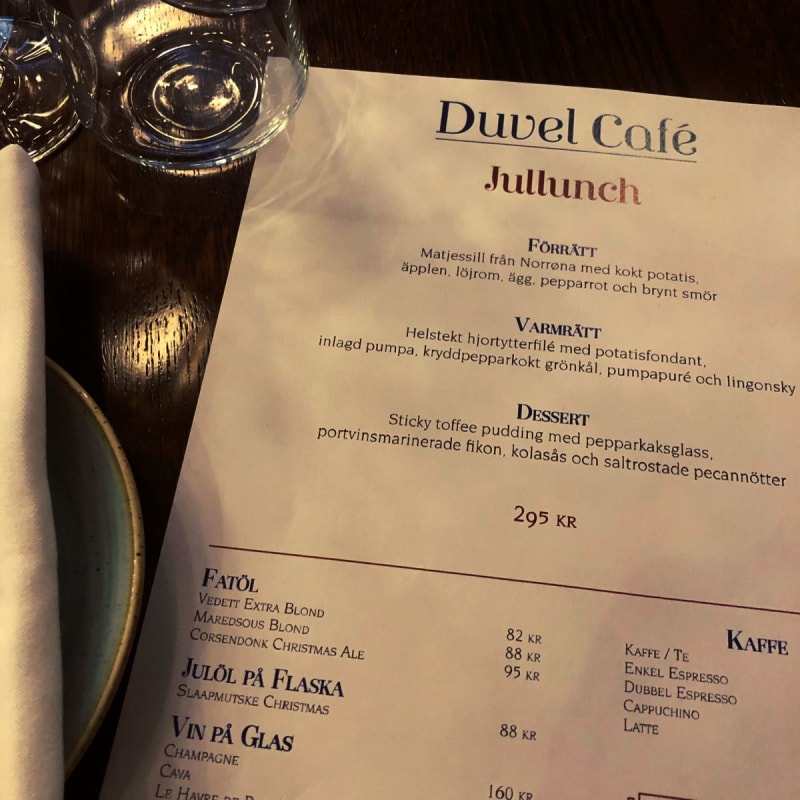 Duvel Café
Jullunch
Förrätt
Matjessill från Norrøna med kokt potatis,
äpplen, löjrom, ägg, pepparrot och brynt smör
Varmrätt
Helstekt hjortytterfilé med potatisfondant,
inlagd pumpa, kryddpepparkokt grönkål, pumpapuré och lingonsky
Dessert
Sticky toffee pudding med pepparkaksglass,
portvinsmarinerade fikon, kolasås och saltrostade pecannötter
295 kr
Fatöl
Vedett Extra Blond 82 kr
Maredsous Blond 88 kr
Corsendonk Christmas Ale 95 kr
Julöl på Flaska
Slaapmutske Christmas 88 kr
Vin på Glas
Champagne 160 kr
Cava
Le Havre de
Kaffe
Kaffe / Te
Enkel Espresso
Dubbel Espresso
Cappuchino
Latte